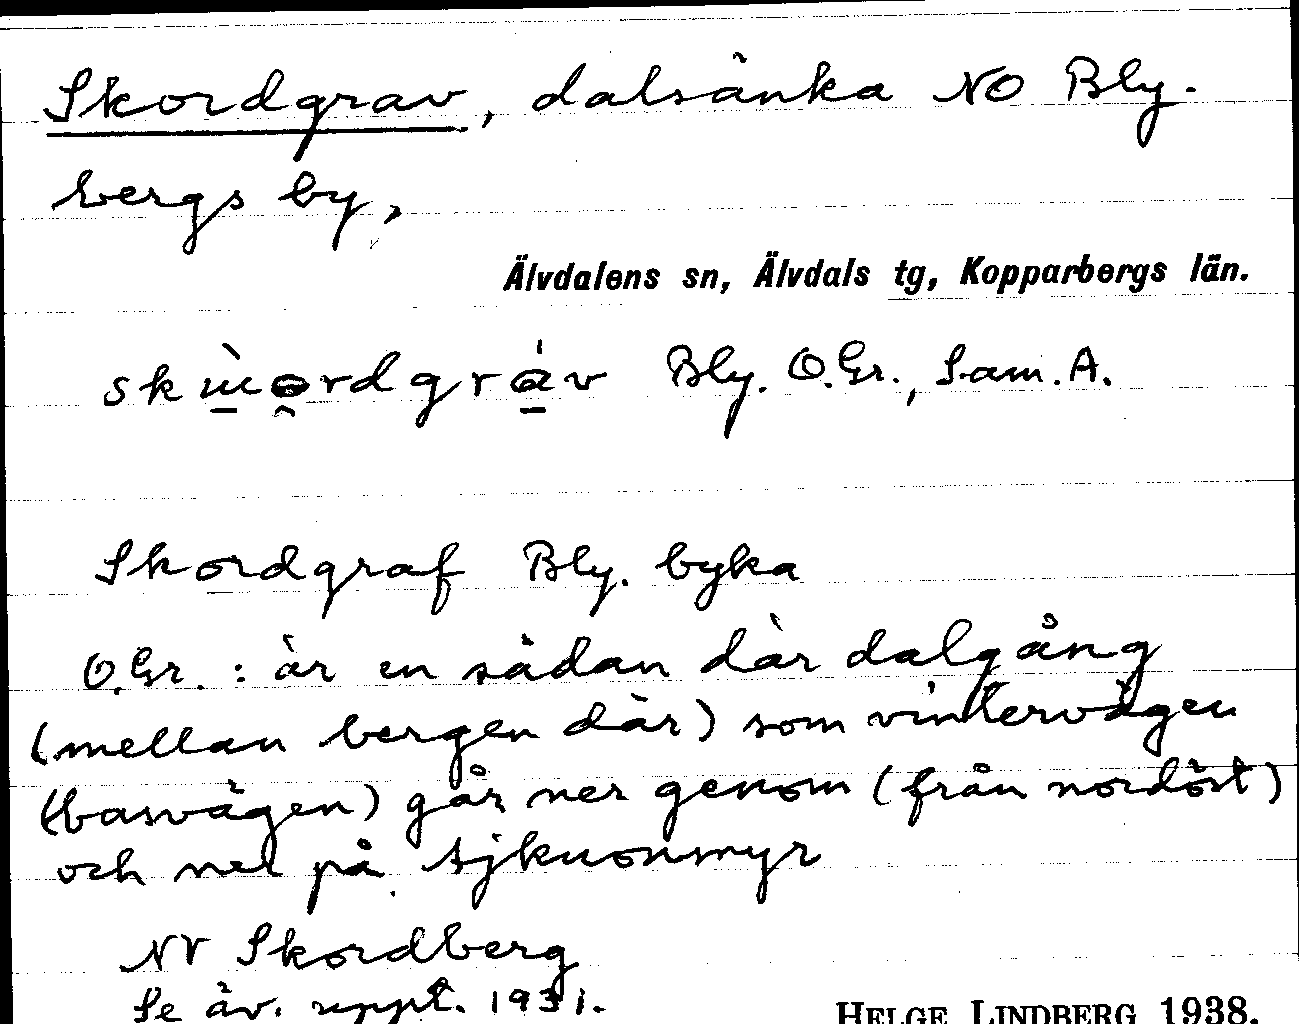 Skordgrav, dalsänka NO Bly-
bergs by,
Älvdalens sn, Älvdals tg, Kopparbergs län.
Bly. O.Gr., Sam. A.
Skordgraf Bly. byka
O.Gr. : är en sådan där dalgång
(mellan bergen där) som vintervägen
(basvägen) går ner genom (från nordöst)
och ned på
NV Skordberg
Se äv. uppt. 1931.
HELGE LINDBERG 1938.